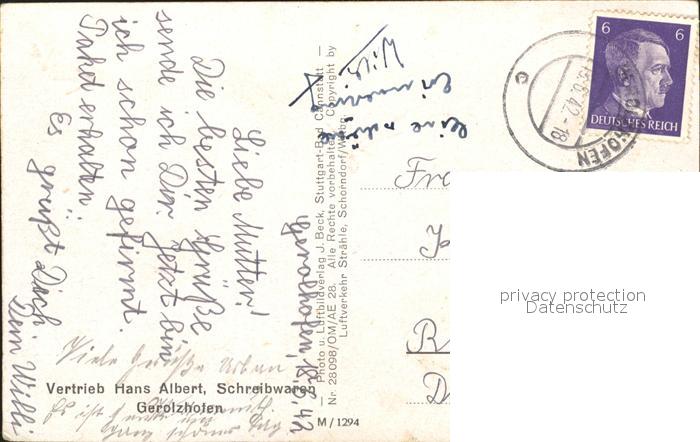 Gerolzhofen, 18.5.42
Liebe Mutter!
Die besten Grüße
sende ich Dir. Jetzt bin
ich schon gefirmt.
Paket erhalten!
Es grüßt Dich
Dein Willi
Viele Grüße Urban
Es ist heute
ganz schöner Tag
Vertrieb Hans Albert, Schreibwaren
Gerolzhofen
M/1294
— Photo u. Luftbildverlag J. Beck, Stuttgart-Bad Cannstatt —
Nr. 28098/OM/AE 28. Alle Rechte vorbehalten. Copyright by
Luftverkehr Strähle, Schorndorf/Wttbg.
6 6
DEUTSCHES REICH
42-18
HOFEN
c
Fr
R
D
privacy protection
Datenschutz